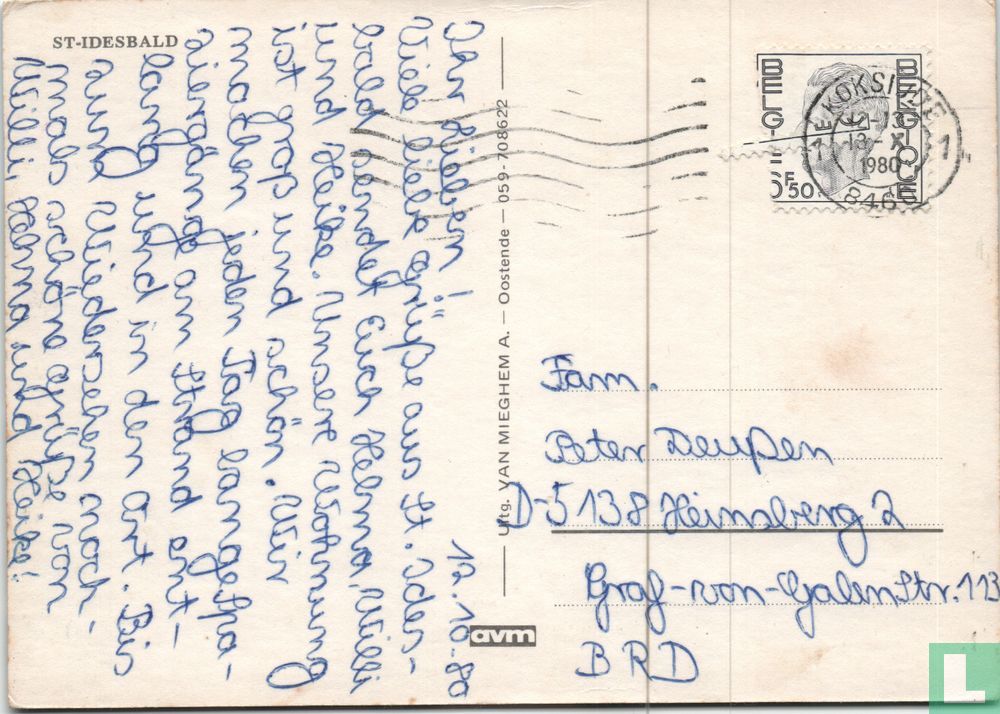 ST-IDESBALD
12.10.80
Ihr Lieben!
Viele liebe Grüße aus St. Ides-
bald sendet Euch Helma, Willi
und Heike. Unsere Wohnung
ist groß und schön. Wir
machen jeden Tag lange Spa-
ziergänge am Strand ent-
lang und in den Ort. Bis
auf Wiedersehen noch-
mals schöne Grüße von
Willi, Helma und Heike!
Uitg. VAN MIEGHEM A. – Oostende – 059-708622
avm
BELGIE
BELGIQUE
6F50
KOKSIJDE
1
1
13-X
1980
Fam.
Peter Deußen
D-5138 Heinsberg 2
Graf-von-Galen-Str. 113
BRD
L